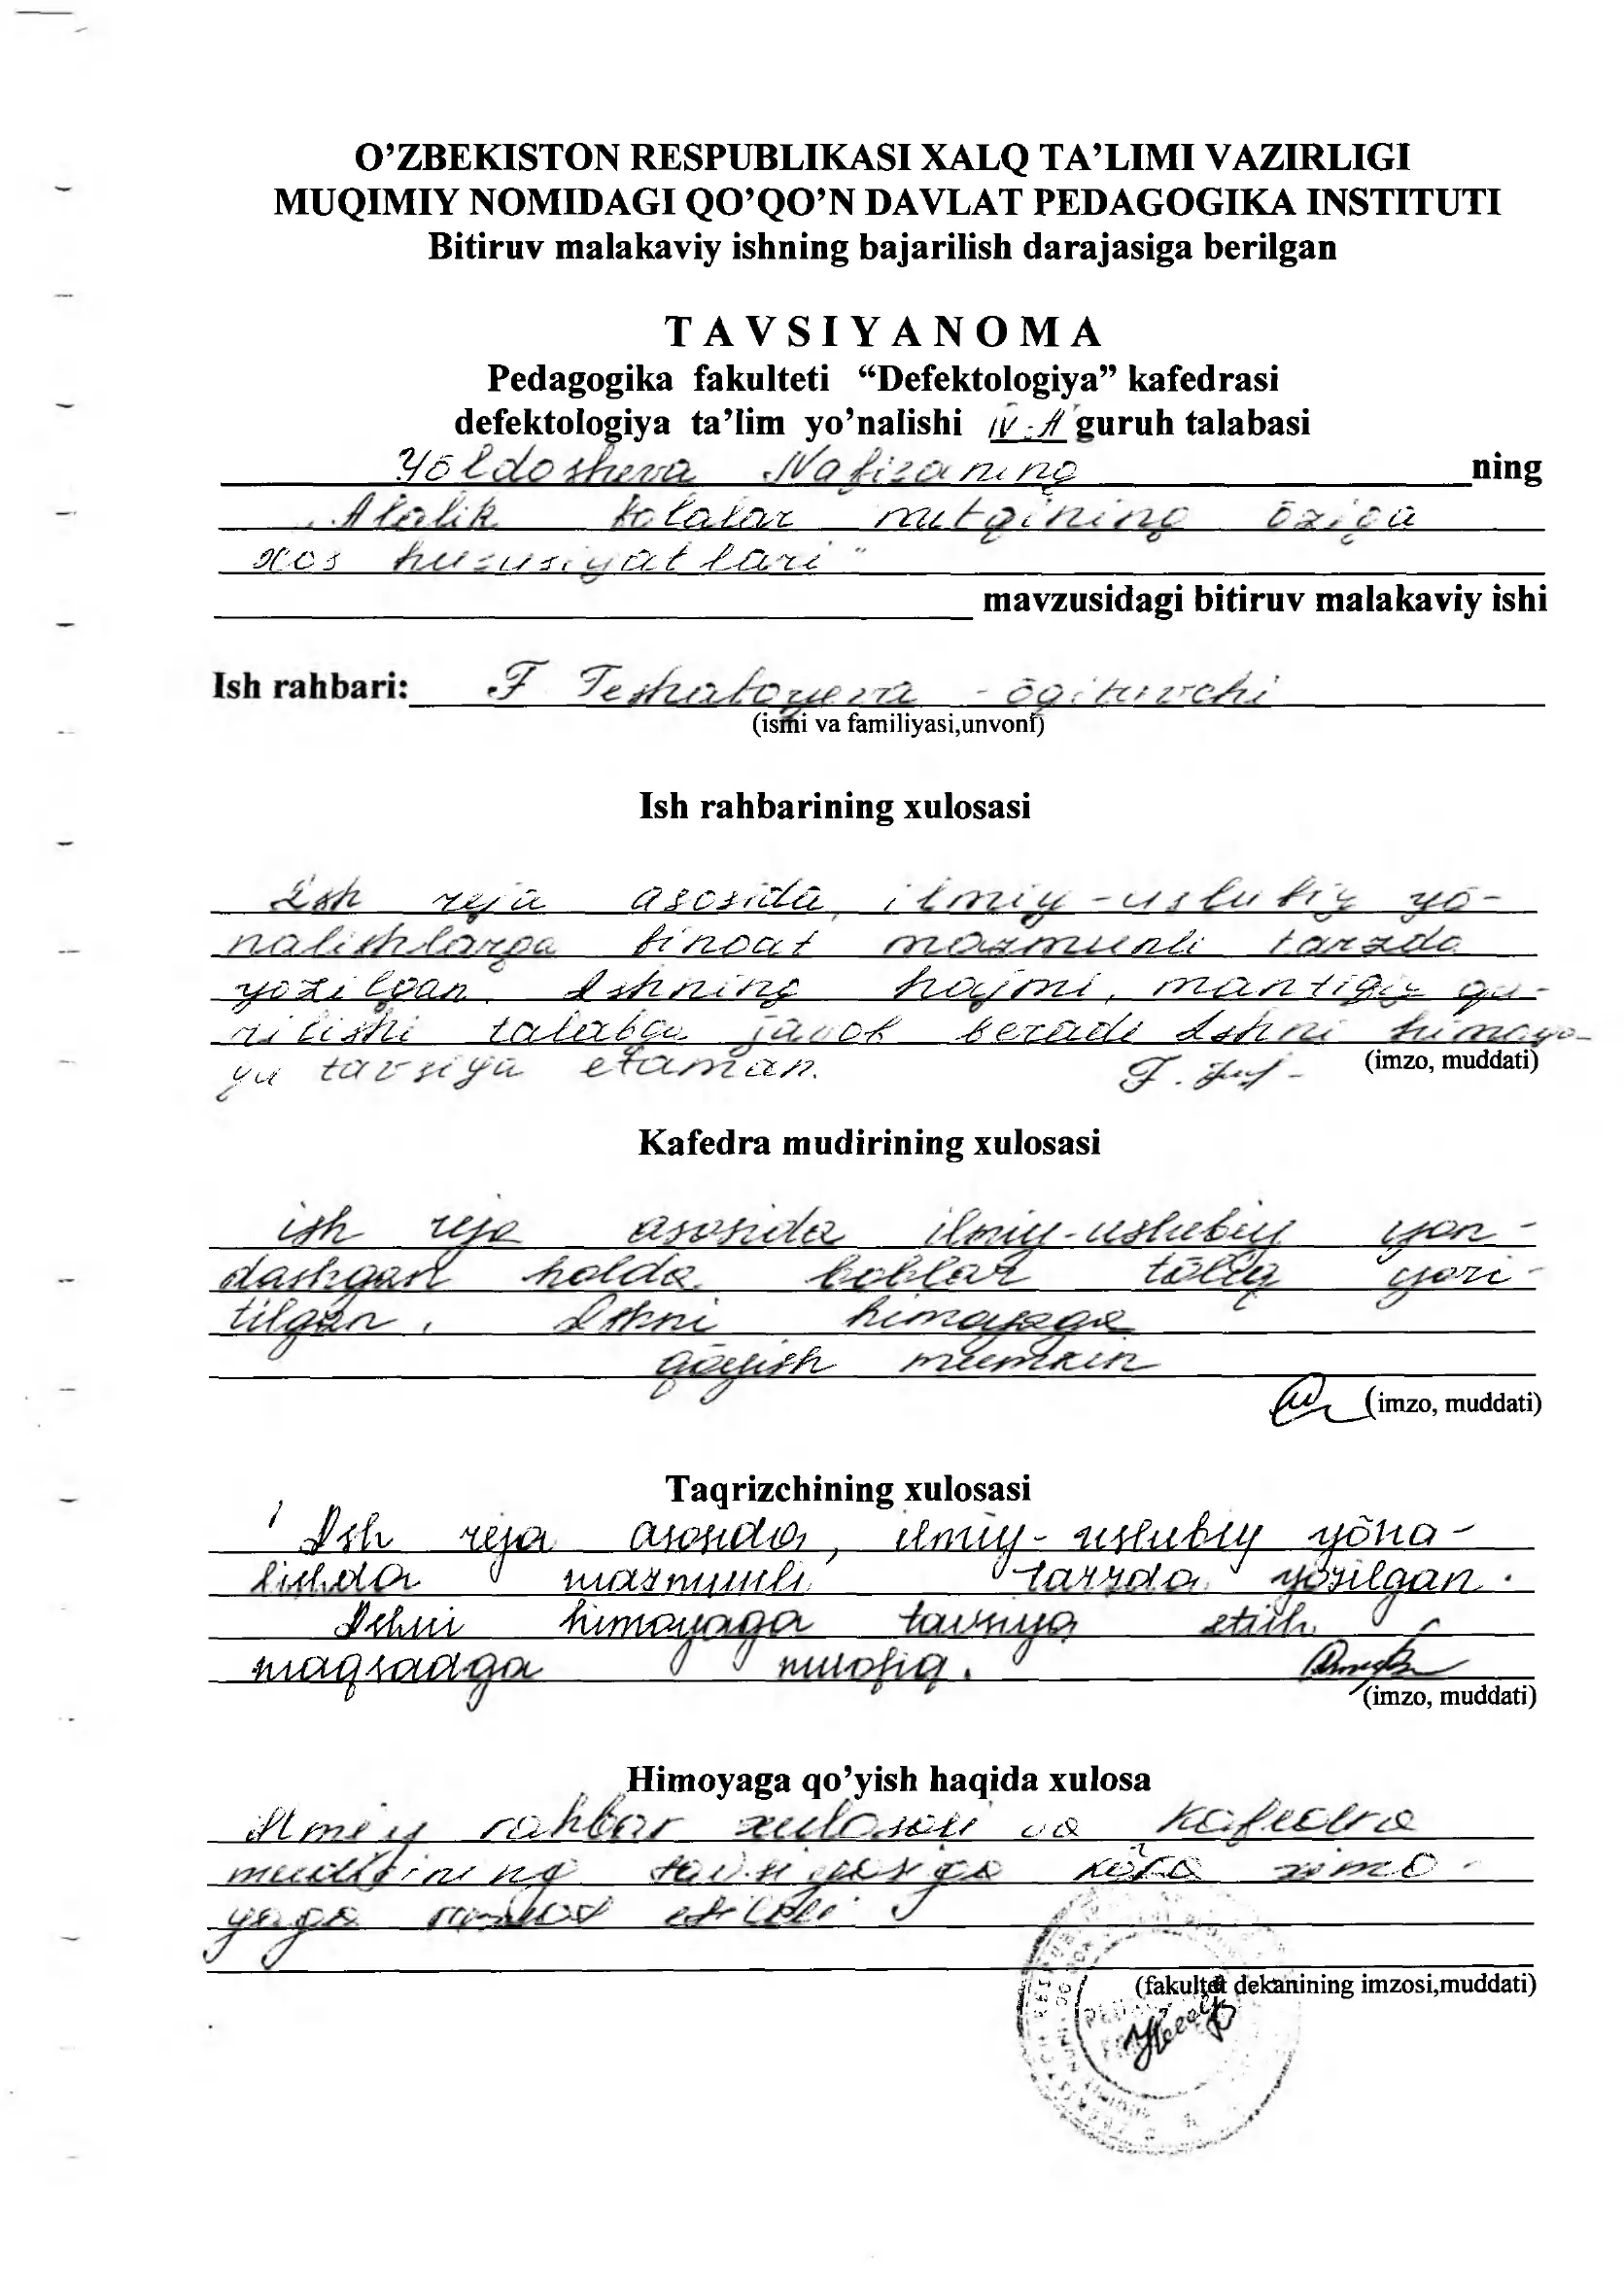 O’ZBEKISTON RESPUBLIKASI XALQ TA’LIMI VAZIRLIGI
MUQIMIY NOMIDAGI QO’QO’N DAVLAT PEDAGOGIKA INSTITUTI
Bitiruv malakaviy ishning bajarilish darajasiga berilgan
TAVSIYANOMA
Pedagogika fakulteti “Defektologiya” kafedrasi
defektologiya ta’lim yo’nalishi IV-A guruh talabasi
Yōldosheva Nafizaning ning
„Alalik bolalar nutqining ōziga
xos hususiyatlari”
mavzusidagi bitiruv malakaviy ishi
Ish rahbari: F Teshaboyeva - ōqituvchi
(ismi va familiyasi,unvoni)
Ish rahbarining xulosasi
Ish reja asosida, ilmiy-uslubiy yō-
nalishlarga binoat mazmunli tarzda
yozilgan. Ishning hajmi, mantiqiy qu-
rilishi talabga javob beradi Ishni himoya-
ga tavsiya etaman. F.
(imzo, muddati)
Kafedra mudirining xulosasi
ish reja asosida ilmiy-uslubiy yon-
dashgan holda boblar tōliq yori-
tilgan. Ishni himoyaga
qōyish mumkin
(imzo, muddati)
Taqrizchining xulosasi
Ish reja asosida, ilmiy-uslubiy yōna-
lishda mazmunli tarzda yozilgan.
Ishni himoyaga tavsiya etish
maqsadga muofiq.
(imzo, muddati)
Himoyaga qo’yish haqida xulosa
Ilmiy rahbar xulosasi va kafedra
mudirining tavsiyasiga kōra ximo-
yaga etildi
(fakultet dekanining imzosi,muddati)